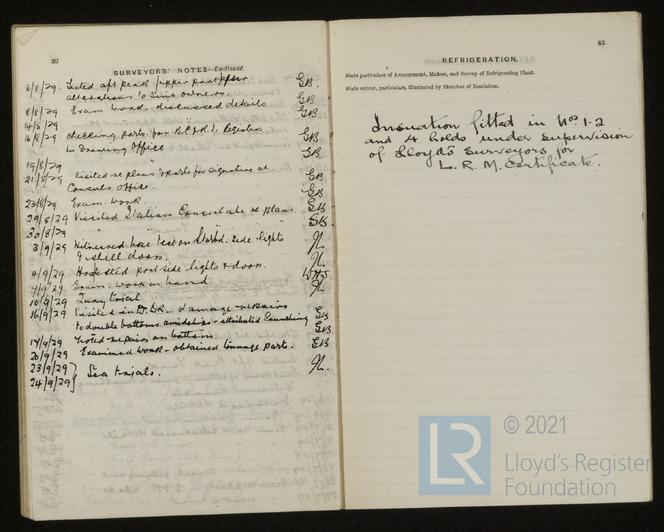 82
SURVEYORS' NOTES—Continued.
6/8/29. Tested aft peak (upper part) after GB.
alterations to suit owners
8/8/29 Exam work. discussed details GB
14/8/29 " " GB
16/8/29 Checking parts. for R.C. & R.I. Register GB
in Drawing Office
19/8/29 GB
21/8/29 Visited re plans & parts for signature at GB
Consuls office.
23/8/29 Exam. work. GB
29/8/29 Visited Italian Consulate re plans. GB
30/8/29 " GB
3/9/29 Witnessed hose test on Starbd. side lights
& shell doors.
4/9/29 Hose tested port side lights & doors.
7/9/29 Exam. work in hand
10/9/29 Quay trial
16/9/29 Visited in D.D. - damage repairs GB
to double bottoms amidships - attributed launching GB
17/9/29 Tested repairs on bottom GB
20/9/29 Examined work - obtained tonnage part. GB
23/9/29
24/9/29 } Sea trials.
83
REFRIGERATION.
State particulars of Arrangement, Makers, and Survey of Refrigerating Plant.
State extent, particulars, illustrated by Sketches of Insulation.
Insulation fitted in Nos 1-2
and 4 holds under supervision
of Lloyd's Surveyors for
L. R. M. Certificate.
LR
© 2021
Lloyd's Register
Foundation